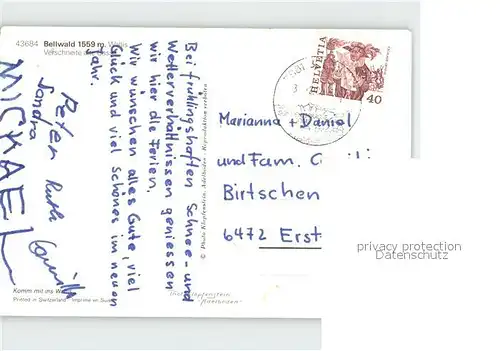 43684 Bellwald 1559 m. Wallis
Verschneite
Bei frühlingshaften Schnee- und
Wetterverhältnissen geniessen
wir hier die Ferien.
Wir wünschen alles Gute, viel
Glück und viel schönes im neuen
Jahr.
Peter Ruth
Sandra
MICKAEL
© Photo Klopfenstein, Adelboden - Reproduktion verboten
HELVETIA
40
Marianna + Daniel
und Fam.
Birtschen
6472 Erst
privacy protection
Datenschutz
Komm mit ins
Printed in Switzerland - Imprimé en